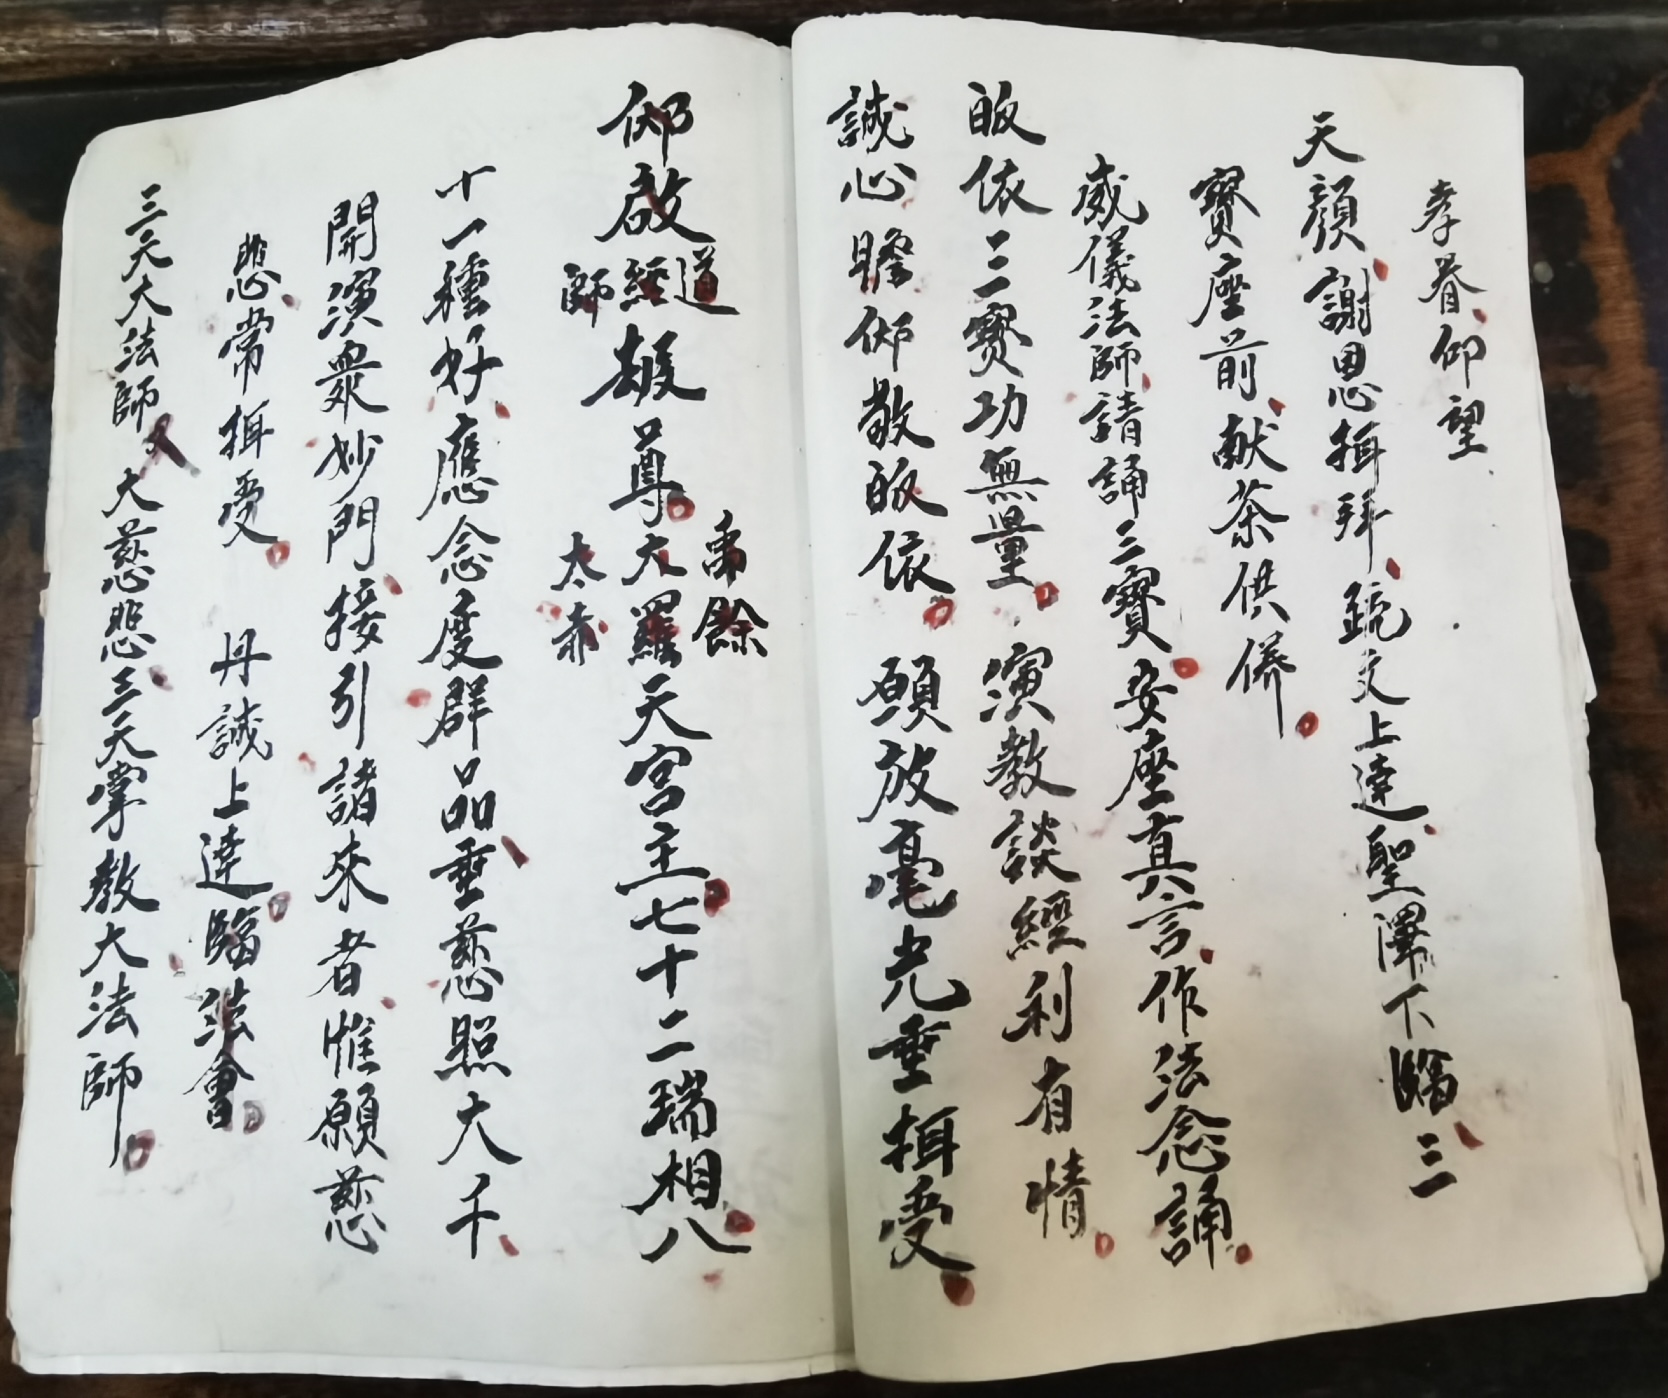 孝眷仰望
天顏謝恩揖拜疏文上達聖澤下臨三
寶座前献茶供養
威儀法師請誦三寶安座真言作法念誦
皈依三寶功無量演教談經利有情
誠心瞻仰敬皈依願放毫光垂揖受
禹餘
道
仰啟經 尊大羅天宮主七十二瑞相八
師
太赤
十一種好應念度群品垂慈照大千
開演衆妙門接引諸來者惟願慈
悲常揖受 丹誠上達臨法會
三天大法師 大慈悲三天掌教大法師